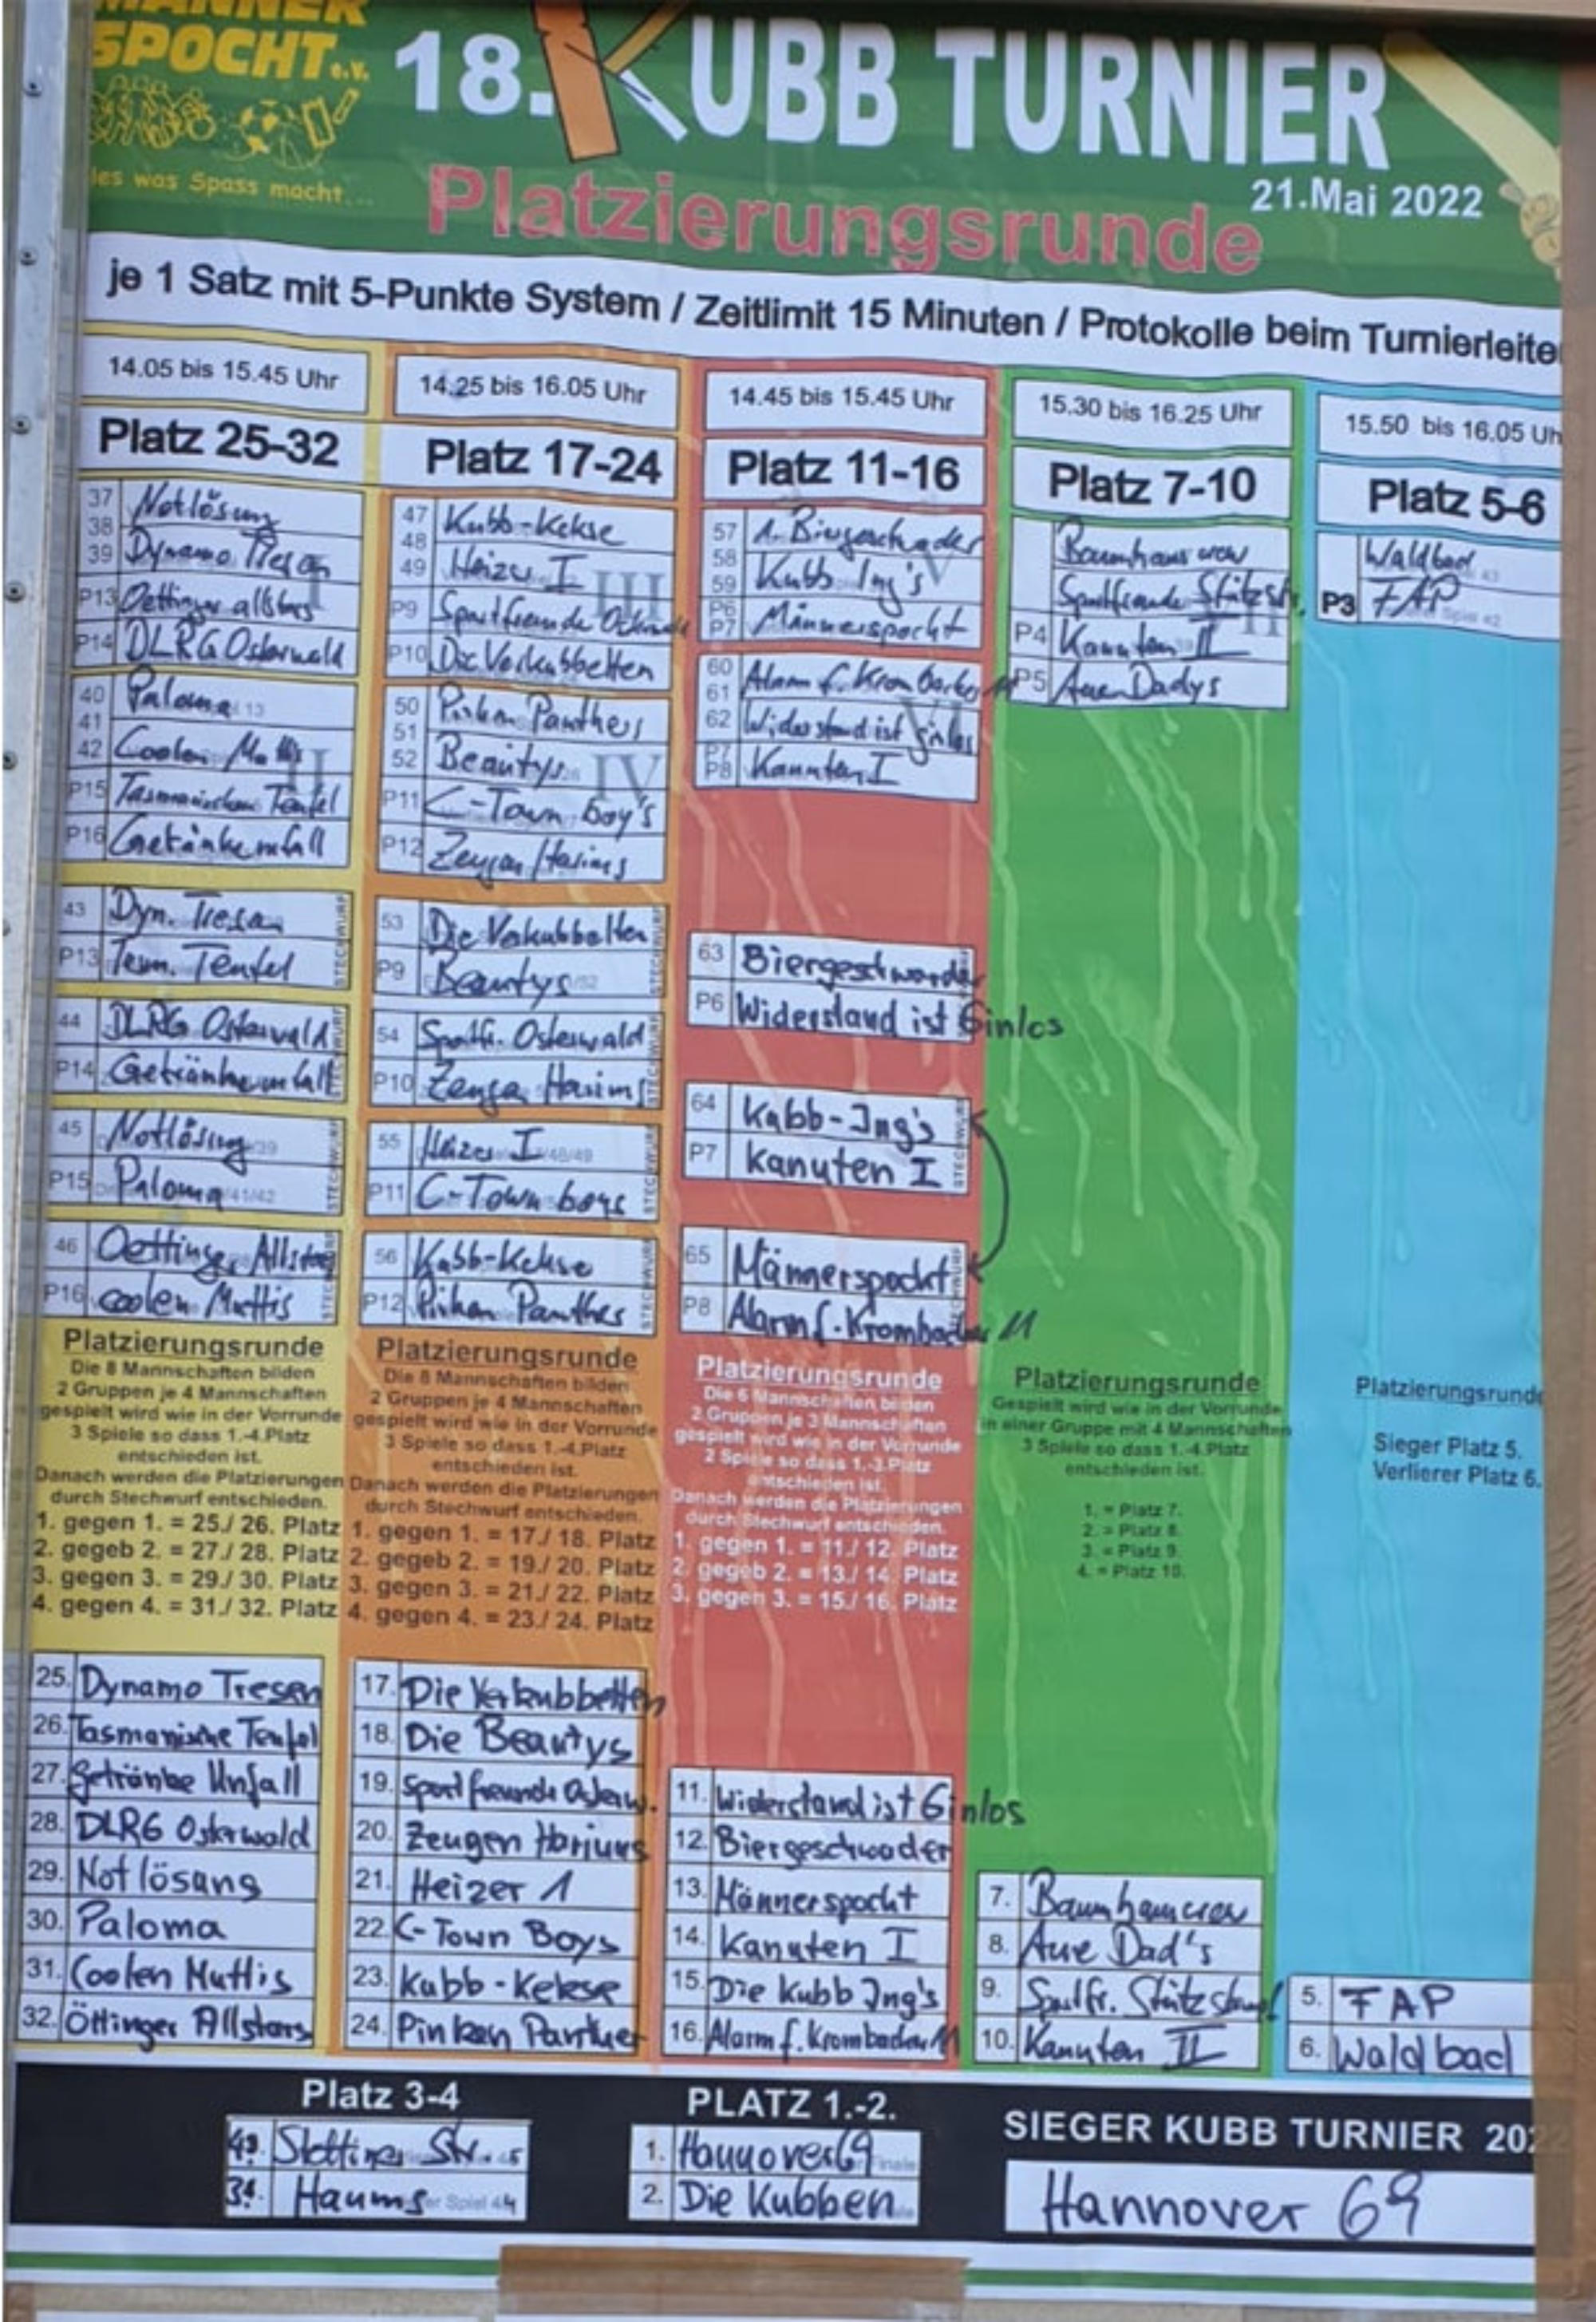 MÄNNER
SPOCHT e.V.
les was Spass macht...
18. KUBB TURNIER
21.Mai 2022
Platzierungsrunde
je 1 Satz mit 5-Punkte System / Zeitlimit 15 Minuten / Protokolle beim Turnierleite
14.05 bis 15.45 Uhr
Platz 25-32
37 Notlösung
38
39 Dynamo Tresen
I
P13 Oettinger allstars
P14 DLRG Osterwald
40 Paloma
41
42 Coolen Muttis
II
P15 Tasmanischen Teufel
P16 Getränkeunfall
43 Dyn. Tresen
P13 Tesm. Teufel
STECHWURF
44 DLRG Osterwald
P14 Getränkeunfall
45 Notlösung
P15 Paloma
46 Oettinger Allstars
P16 coolen Muttis
Platzierungsrunde
Die 8 Mannschaften bilden
2 Gruppen je 4 Mannschaften
gespielt wird wie in der Vorrunde
3 Spiele so dass 1.-4.Platz
entschieden ist.
Danach werden die Platzierungen
durch Stechwurf entschieden.
1. gegen 1. = 25./ 26. Platz
2. gegeb 2. = 27./ 28. Platz
3. gegen 3. = 29./ 30. Platz
4. gegen 4. = 31./ 32. Platz
25. Dynamo Tresen
26. Tasmanische Teufel
27. Getränke Unfall
28. DLRG Osterwald
29. Notlösung
30. Paloma
31. Coolen Muttis
32. Öttinger Allstars
14.25 bis 16.05 Uhr
Platz 17-24
47 Kubb-Kekse
48
49 Heizer I
III
P9 Sportfreunde
P10 Die Verkubbelten
50 Pinken Panthers
51
52 Beautys
IV
P11 C-Town boy's
P12 Zeugen
53 Die Verkubbelten
P9 Beautys
54 Sportfr. Osterwald
P10
55 Heizer I
P11 C-Town boys
56 Kubb-Kekse
P12 Pinken Panthers
Platzierungsrunde
Die 8 Mannschaften bilden
2 Gruppen je 4 Mannschaften
gespielt wird wie in der Vorrunde
3 Spiele so dass 1.-4.Platz
entschieden ist.
Danach werden die Platzierungen
durch Stechwurf entschieden.
1. gegen 1. = 17./ 18. Platz
2. gegeb 2. = 19./ 20. Platz
3. gegen 3. = 21./ 22. Platz
4. gegen 4. = 23./ 24. Platz
17. Die Verkubbelten
18. Die Beautys
19. Sportfreunde Osterw.
20. Zeugen
21. Heizer 1
22. C-Town Boys
23. Kubb-Kekse
24. Pinken Panther
14.45 bis 15.45 Uhr
Platz 11-16
57 1. Biergeschwader
58
59 Kubb Ing's
V
P6
P7 Männerspocht
60
61 Alarm f. Krombacher 11
62 Widerstand ist Ginlos
VI
P7
P8 Kanuten I
63 Biergeschwader
P6 Widerstand ist Ginlos
64 Kubb-Ing's
P7 Kanuten I
65 Männerspocht
P8 Alarm f. Krombacher 11
Platzierungsrunde
Die 6 Mannschaften bilden
2 Gruppen je 3 Mannschaften
gespielt wird wie in der Vorrunde
2 Spiele so dass 1.-3.Platz
entschieden ist.
Danach werden die Platzierungen
durch Stechwurf entschieden.
1. gegen 1. = 11./ 12. Platz
2. gegeb 2. = 13./ 14. Platz
3. gegen 3. = 15./ 16. Platz
11. Widerstand ist Ginlos
12. Biergeschwader
13. Männerspocht
14. Kanuten I
15. Die Kubb Ing's
16. Alarm f. Krombacher 11
15.30 bis 16.25 Uhr
Platz 7-10
Baumhaus crew
Sportfreunde
P4 Kanuten II
P5 Aue Dadys
Platzierungsrunde
Gespielt wird wie in der Vorrunde
in einer Gruppe mit 4 Mannschaften
3 Spiele so dass 1.-4.Platz
entschieden ist.
1. = Platz 7.
2. = Platz 8.
3. = Platz 9.
4. = Platz 10.
7.
8. Aue Dad's
9.
10. Kanuten II
15.50 bis 16.05 Uh
Platz 5-6
Waldbad
P3 FAP
Platzierungsrunde
Sieger Platz 5.
Verlierer Platz 6.
5. FAP
6. Waldbad
Platz 3-4
Stettiner Str.
Haums
PLATZ 1.-2.
1. Hannover 69
2. Die Kubben
SIEGER KUBB TURNIER 202
Hannover 69